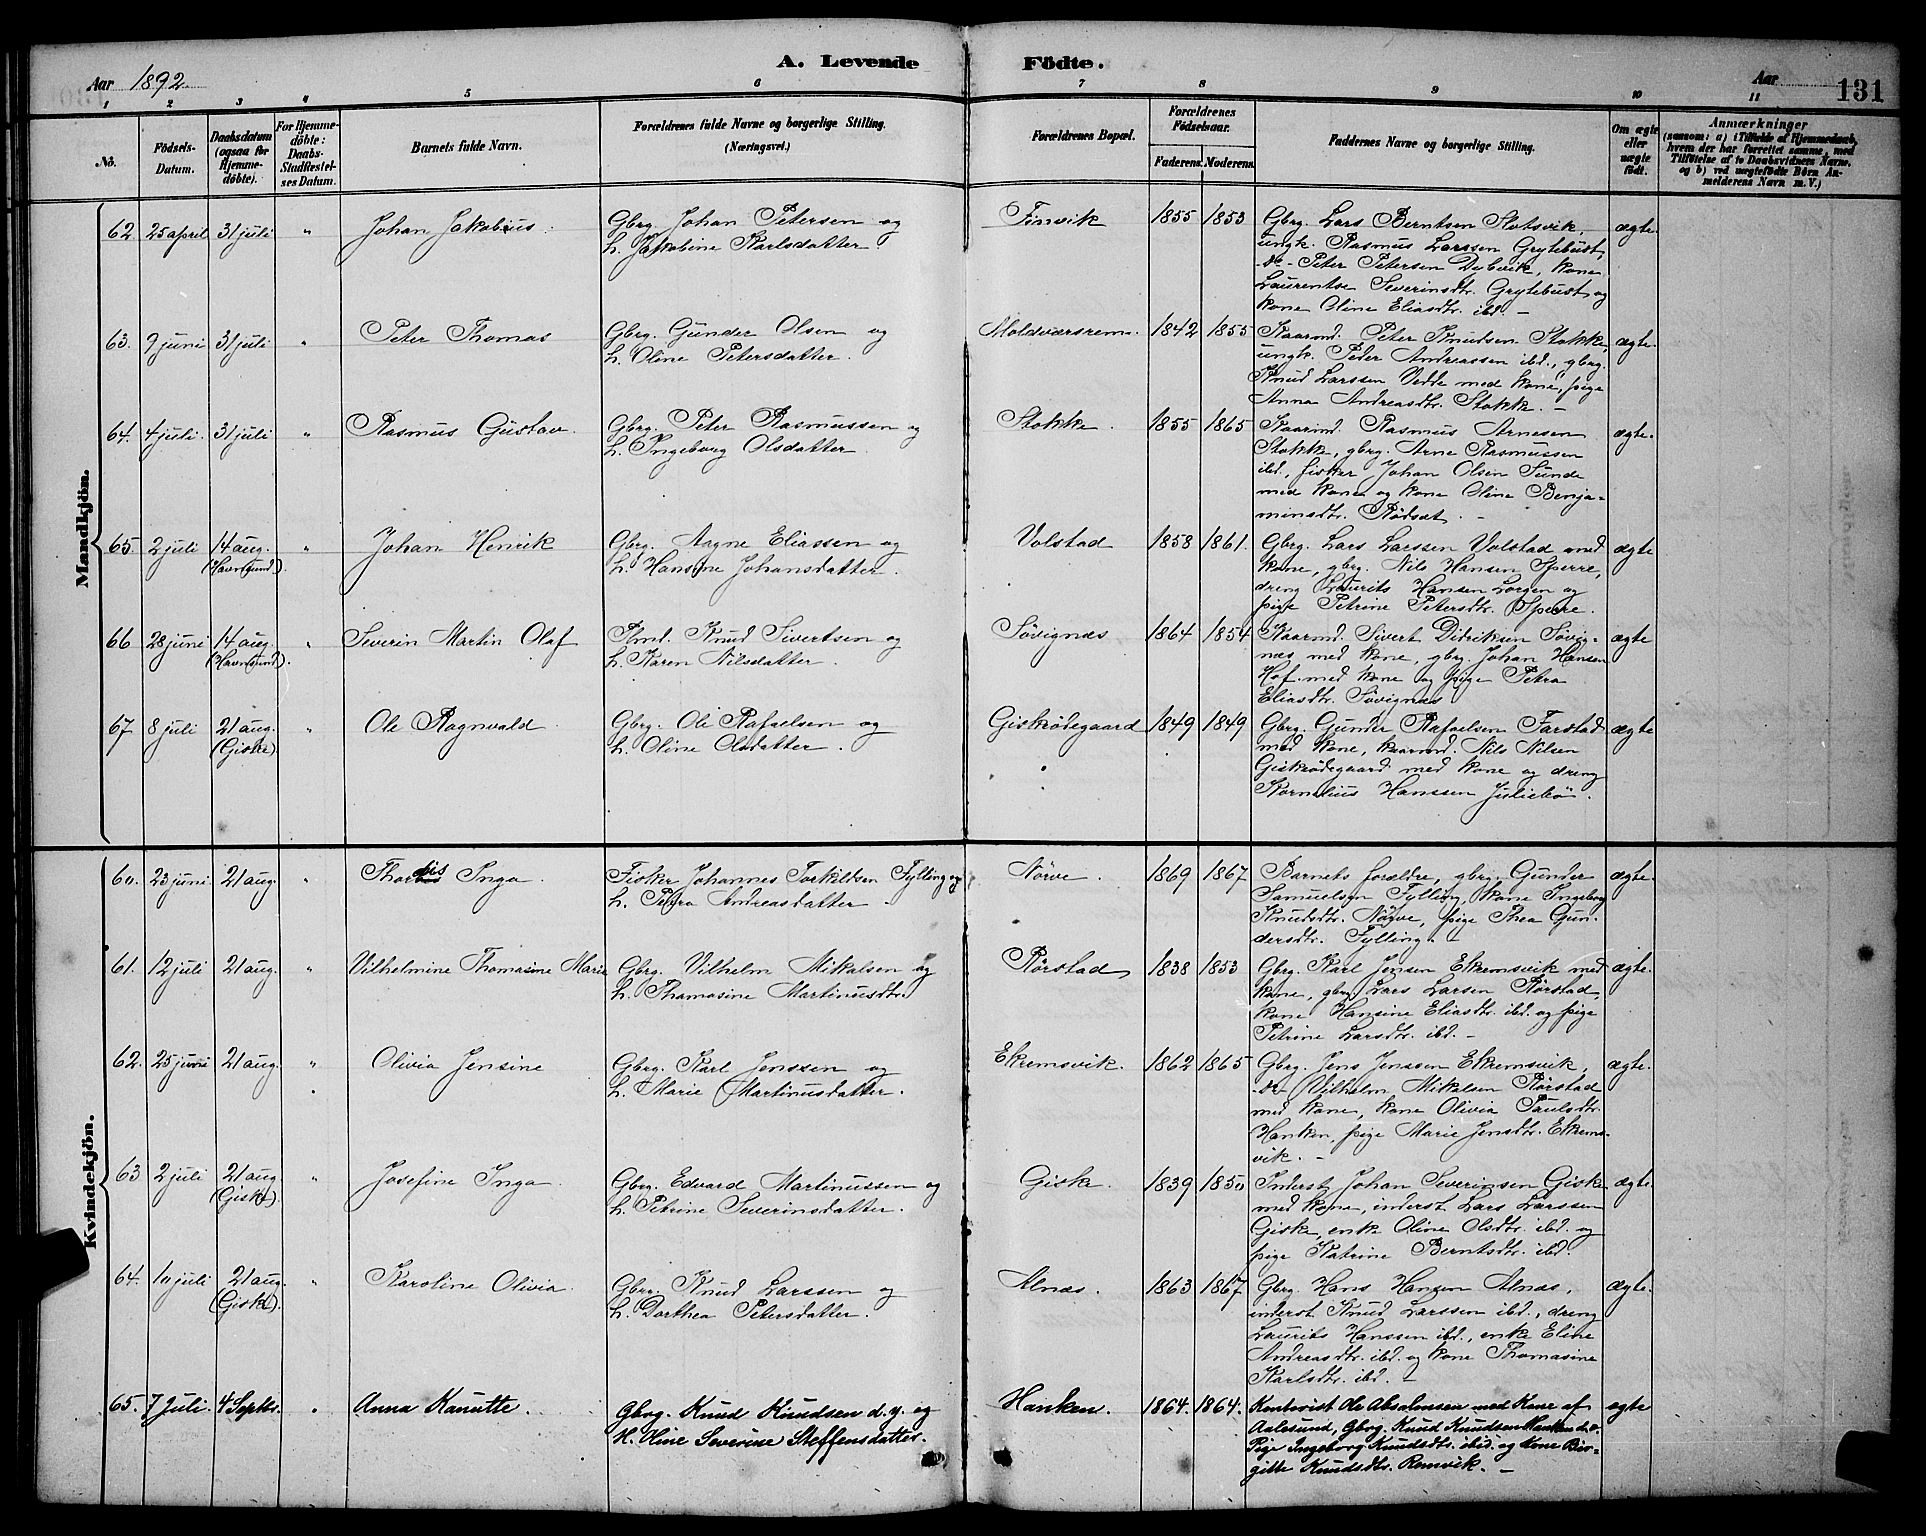 A. Levende Födte.
Aar 1892
Aar 131
1 2 3 4 5 6 7 8 9 10 11
No.
Födsels-Datum.
Daabsdatum (ogsaa for Hjemme-döbte).
For Hjemme-döbte: Daabs-Stadfæstel-ses Datum.
Barnets fulde Navn.
Forældrenes fulde Navne og borgerlige Stilling. (Næringsvei.)
Forældrenes Bopæl.
Forældrenes Födselsaar.
Faderens. Moderens.
Faddernes Navne og borgerlige Stilling.
Om ægte eller uægte födt.
Anmærkninger
(saasom: a) i Tilfælde af Hjemmedaab,
hvem der har forrettet samme, med
Tilföielse af to Daabsvidners Navne,
og b) ved uægtefödte Börn An-
melderens Navn m. V.)
Mandkjön.
62 25 april 31 juli " Johan Jakobius. Gbrg. Johan Petersen og
h. Jakobine Karlsdatter
Finvik 1855 1853
Gbrg. Lars Berntsen Slotsvik,
ungk. Rasmus Larssen Grytebust,
-do- Peter Petersen Dybvik, kone
Laurentse Severinsdtr. Grytebust og
kone Oline Eliasdtr. ibd. -
ægte.
63. 9 juni 31 juli " Peter Thomas Gbrg. Gunder Olsen og
h. Oline Petersdatter.
Moldværsrem. 1842 1855
Kaarmd. Peter Knudsen Stokke,
ungk. Peder Andreassen ibd., gbrg.
Knud Larssen Vedde med kone, pige
Anna Andreasdtr. Stokke. -
ægte.
64. 4 juli. 31 juli " Rasmus Gustav. Gbrg. Peter Rasmussen og
h. Ingeborg Olsdatter.
Stokke. 1855 1865
Kaarmd. Rasmus Arnesen
Stokke, gbrg. Arne Rasmussen
ibd., fisker Johan Olsen Sunde
med kone og kone Oline Benja-
minsdtr. Rödset. -
ægte.
65. 2 juli 14 aug. (Havnsund). " Johan Henrik Gbrg. Aagne Eliassen og
h. Hansine Johansdatter.
Volstad 1858 1861.
Gbrg. Lars Larssen Volstad med
kone, gbrg. Nils Hansen Sperre,
dreng Laurits Hansen Longen og
pige Petrine Petersdtr. Sperre.
ægte
66 28 juni 14 aug. (Havnsund). " Severin Martin Olaf Pbmd. Knud Sivertsen og
h. Karen Nilsdatter.
Sövignæs 1864 1854
Kaarmd. Sivert Didriksen Sövig-
næs med kone, gbrg. Johan Hansen
Hof med kone og pige Petra
Eliasdtr. Sövignæs
ægte
67 8 juli 21 aug. (Giske) " Ole Ragnvald. Gbrg. Ole Rafaelsen og
h. Oline Olsdatter.
Giskeödegaard 1849 1849
Gbrg. Gunder Rafaelsen Farstad
med kone, kaarmd. Nils Nilsen
Giskeödegaard med kone og dreng
Kornelius Hanssen Juliebö.
ægte
Kvindekjön.
60. 23 juni. 21 aug. " Thordis Inga Fisker Johannes Torkildsen Fylling og
h. Petra Andreasdatter.
Nörve. 1869 1867
Barnets forældre, gbrg. Gunder
Samuelsen Fylling, kone Ingeborg
Knudsdtr. Nörve, pige Thea Gun-
dersdtr. Fylling. -
ægte.
61. 12 juli 21 aug. " Vilhelmine Thomasine Marie Gbrg. Vilhelm Mikalsen og
h. Thomasine Martinusdtr.
Rörstad 1838 1853
Gbrg. Karl Jensen Ekremsvik med
kone, gbrg. Lars Larsen Rörstad,
kone Hansine Eliasdtr. ibd. og pige
Petrine Larsdtr. ibd. -
ægte.
62. 25 juni 21 aug. " Olivia Jensine Gbrg. Karl Jenssen og
h. Marie Martinusdatter.
Ekremsvik. 1862 1865
Gbrg. Jens Jenssen Ekremsvik,
-do- Vilhelm Mikalsen Rörstad
med kone, kone Olivia Paulsdtr.
Hanken, pige Marie Jensdtr. Ekrems-
vik. -
ægte.
63 2 juli 21 aug. (Giske). " Josefine Inga. Gbrg. Edvard Martinussen og
h. Petrine Severinsdatter.
Giske. 1839 1850
Inderst Johan Severinsen Giske
med kone, inderst Lars Larssen
Giske, enke Oline Olsdtr. ibd. og
pige Katrine Berntsdtr. ibd.
ægte.
64. 10 juli 21 aug. (Giske). " Karoline Olivia. Gbrg. Knud Larssen og
h. Dorthea Petersdatter.
Alnæs. 1863 1867
Gbrg. Hans Hansen Alnæs,
inderst Knud Larssen ibd., dreng
Laurits Hanssen ibd., enke Eline
Andreasdtr. ibd. og kone Thomasine
Karlsdtr. ibd. -
ægte.
65. 7 Juli. 4 Septbr. " Anna Kanutte. Gbrg. Knud Knudsen d. y. og
H. Oline Severine Steffensdatter.
Hanken. 1864. 1864.
Kontorist Ole Absalonsen med Kone af
Aalesund, Gbrg. Knud Knudsen Hanken d.e.
Pige Ingeborg Knudsdtr. ibid. og Kone Bir-
gitte Knudsdtr. Remvik. -
egte